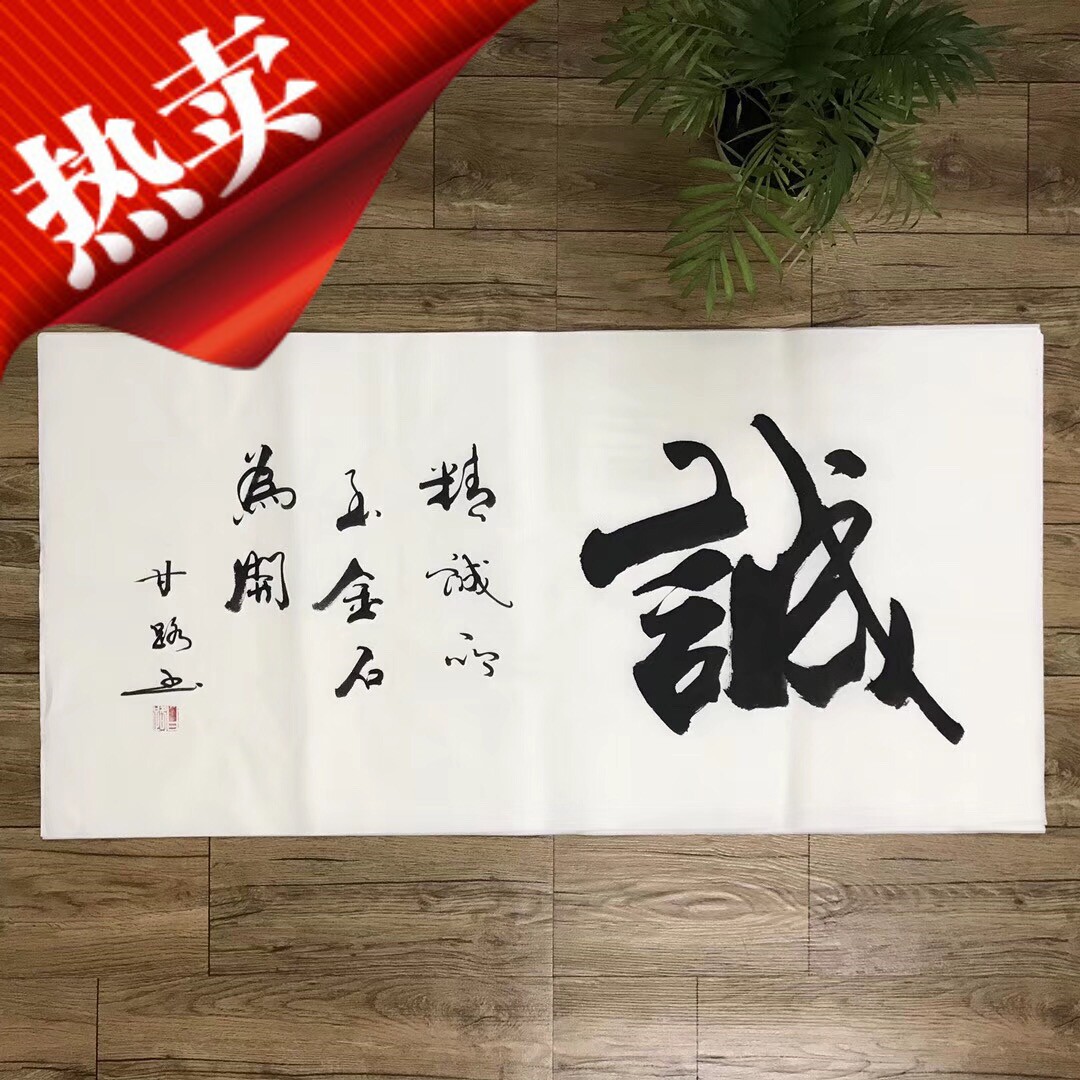 热卖
誠
精誠所
至金石
為開
甘路书